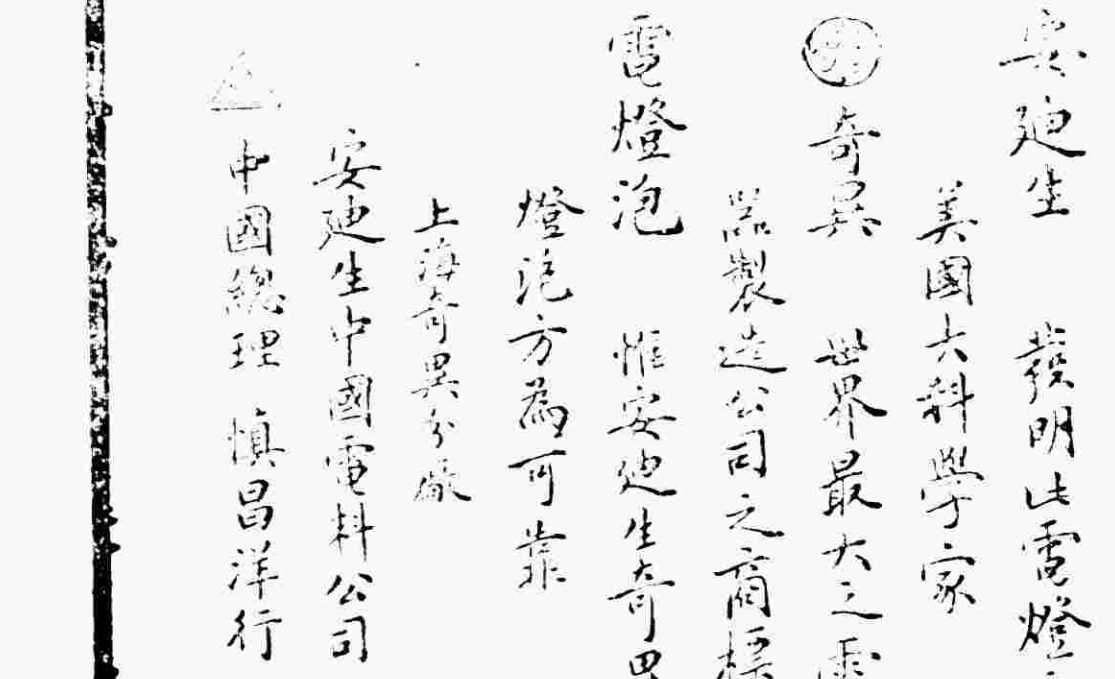 安廸生 發明此電燈
美國大科學家
奇異 世界最大之電
器製造公司之商標
電燈泡 惟安廸生奇異
燈泡方為可靠
上海奇異分廠
安廸生中國電料公司
中國總理 慎昌洋行